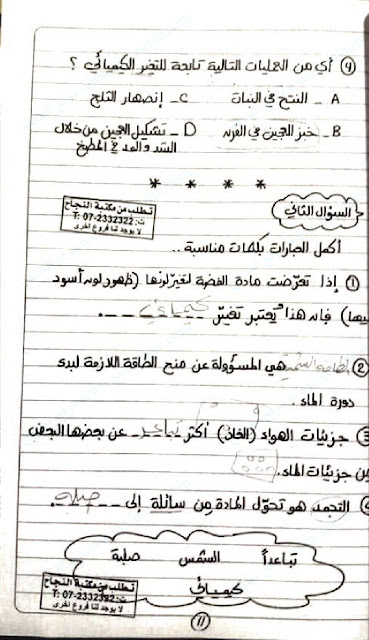 ④ أي من العمليات التالية تابعة للتغير الكيميائي ؟
A - النتح في النبات C - إنصهار الثلج
B - خبز العجين في الفرن D - تشكيل العجين من خلال
الشد والمد في المطبخ
* * * *
تطلب من مكتبة النجاح
ت: 07-2332322 :T
لا يوجد لنا فروع اخرى
السؤال الثاني
أكمل العبارات بكلمات مناسبة ..
① إذا تعرّضت مادة الفضة لتغيّر لونها (ظهور لون أسود
عليها) فإن هذا يُعتبر تغيّر كيميائي .
② الطاقة الشمسية هي المسؤولة عن منح الطاقة اللازمة لبدء
دورة الماء .
③ جزيئات الهواء (الغاز) أكثر تباعد عن بعضها البعض
من جزيئات الماء .
التجمد هو تحوّل المادة من سائلة إلى صلبه .
تباعداً الشمس صلبة
كيميائي
تطلب من مكتبة النجاح
ت: 07-2332322 :T
لا يوجد لنا فروع اخرى
11